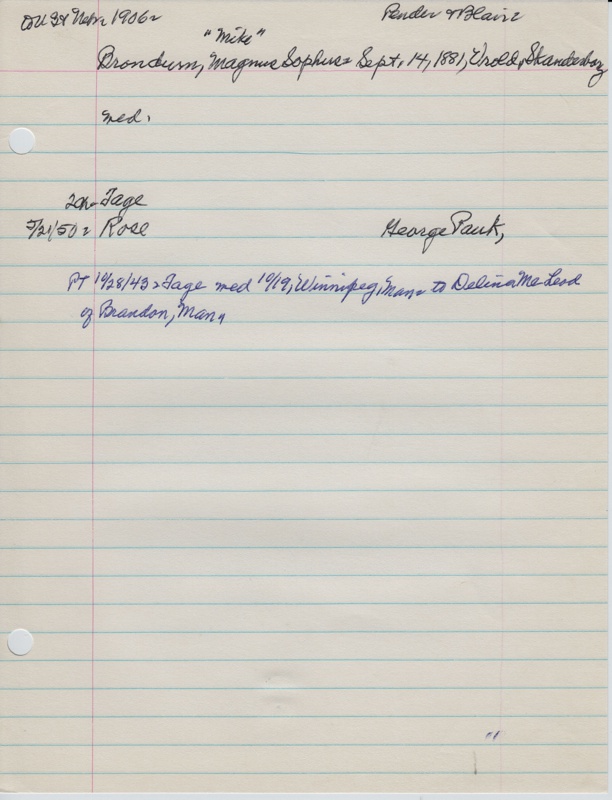 Nebr 1906- Pender & Blair
"Mike"
Brondum, Magnus Sophus- Sept. 14, 1881, Vrold, Skanderborg
med.
Tage
5/21/50- Rose George Pauk,
PT 10/28/43- Tage med 10/19, Winnipeg, Man- to Delina McLeod
of Brandon, Man,
"